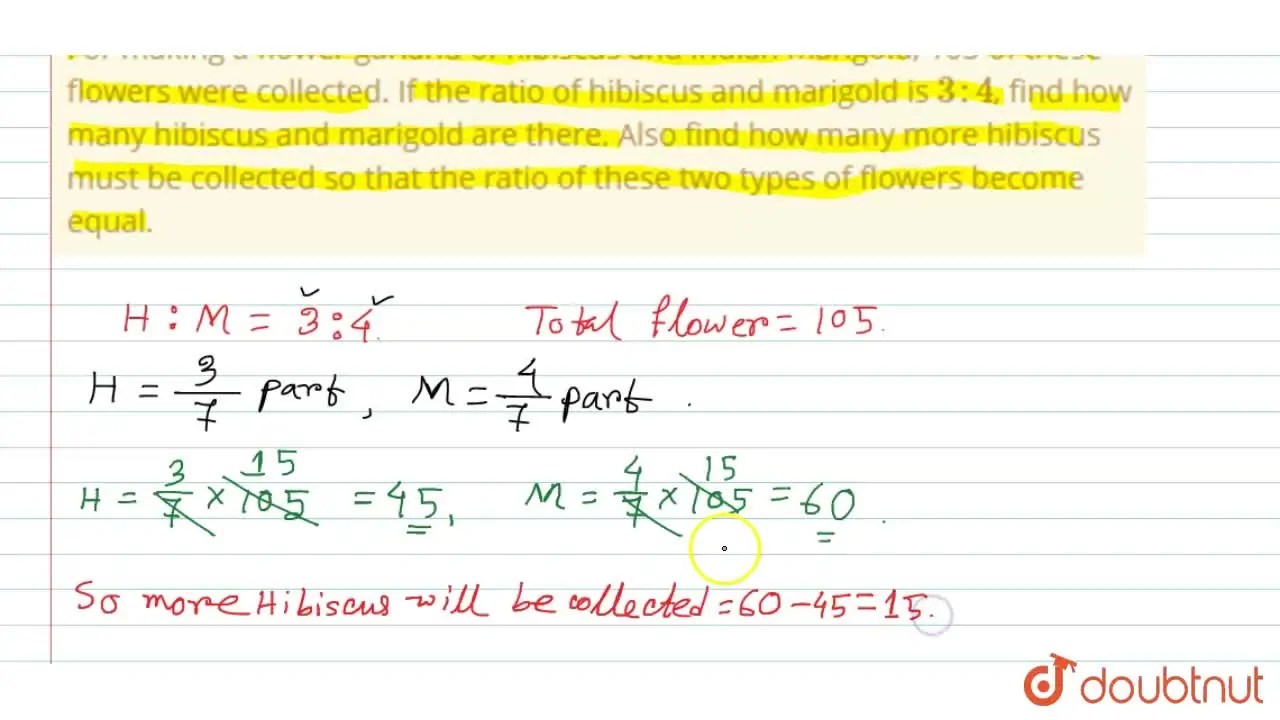 For making a flower garland of hibiscus and Indian marigold, 105 of these
flowers were collected. If the ratio of hibiscus and marigold is 3 : 4, find how
many hibiscus and marigold are there. Also find how many more hibiscus
must be collected so that the ratio of these two types of flowers become
equal.
H : M = 3 : 4. Total flower = 105.
H = 3/7 part, M = 4/7 part.
15 15
H = 3/7 × 105 = 45, M = 4/7 × 105 = 60.
So more Hibiscus will be collected = 60 - 45 = 15.
doubtnut